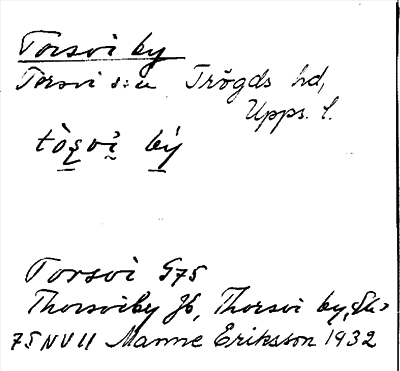 Torsvi by
Torsvi s:n Trögds hd,
Upps. l.
tò̠ʂvi̠ bý
Torsvi G75
Thorsviby Jb, Thorsvi by,
75 NV 11 Manne Eriksson 1932